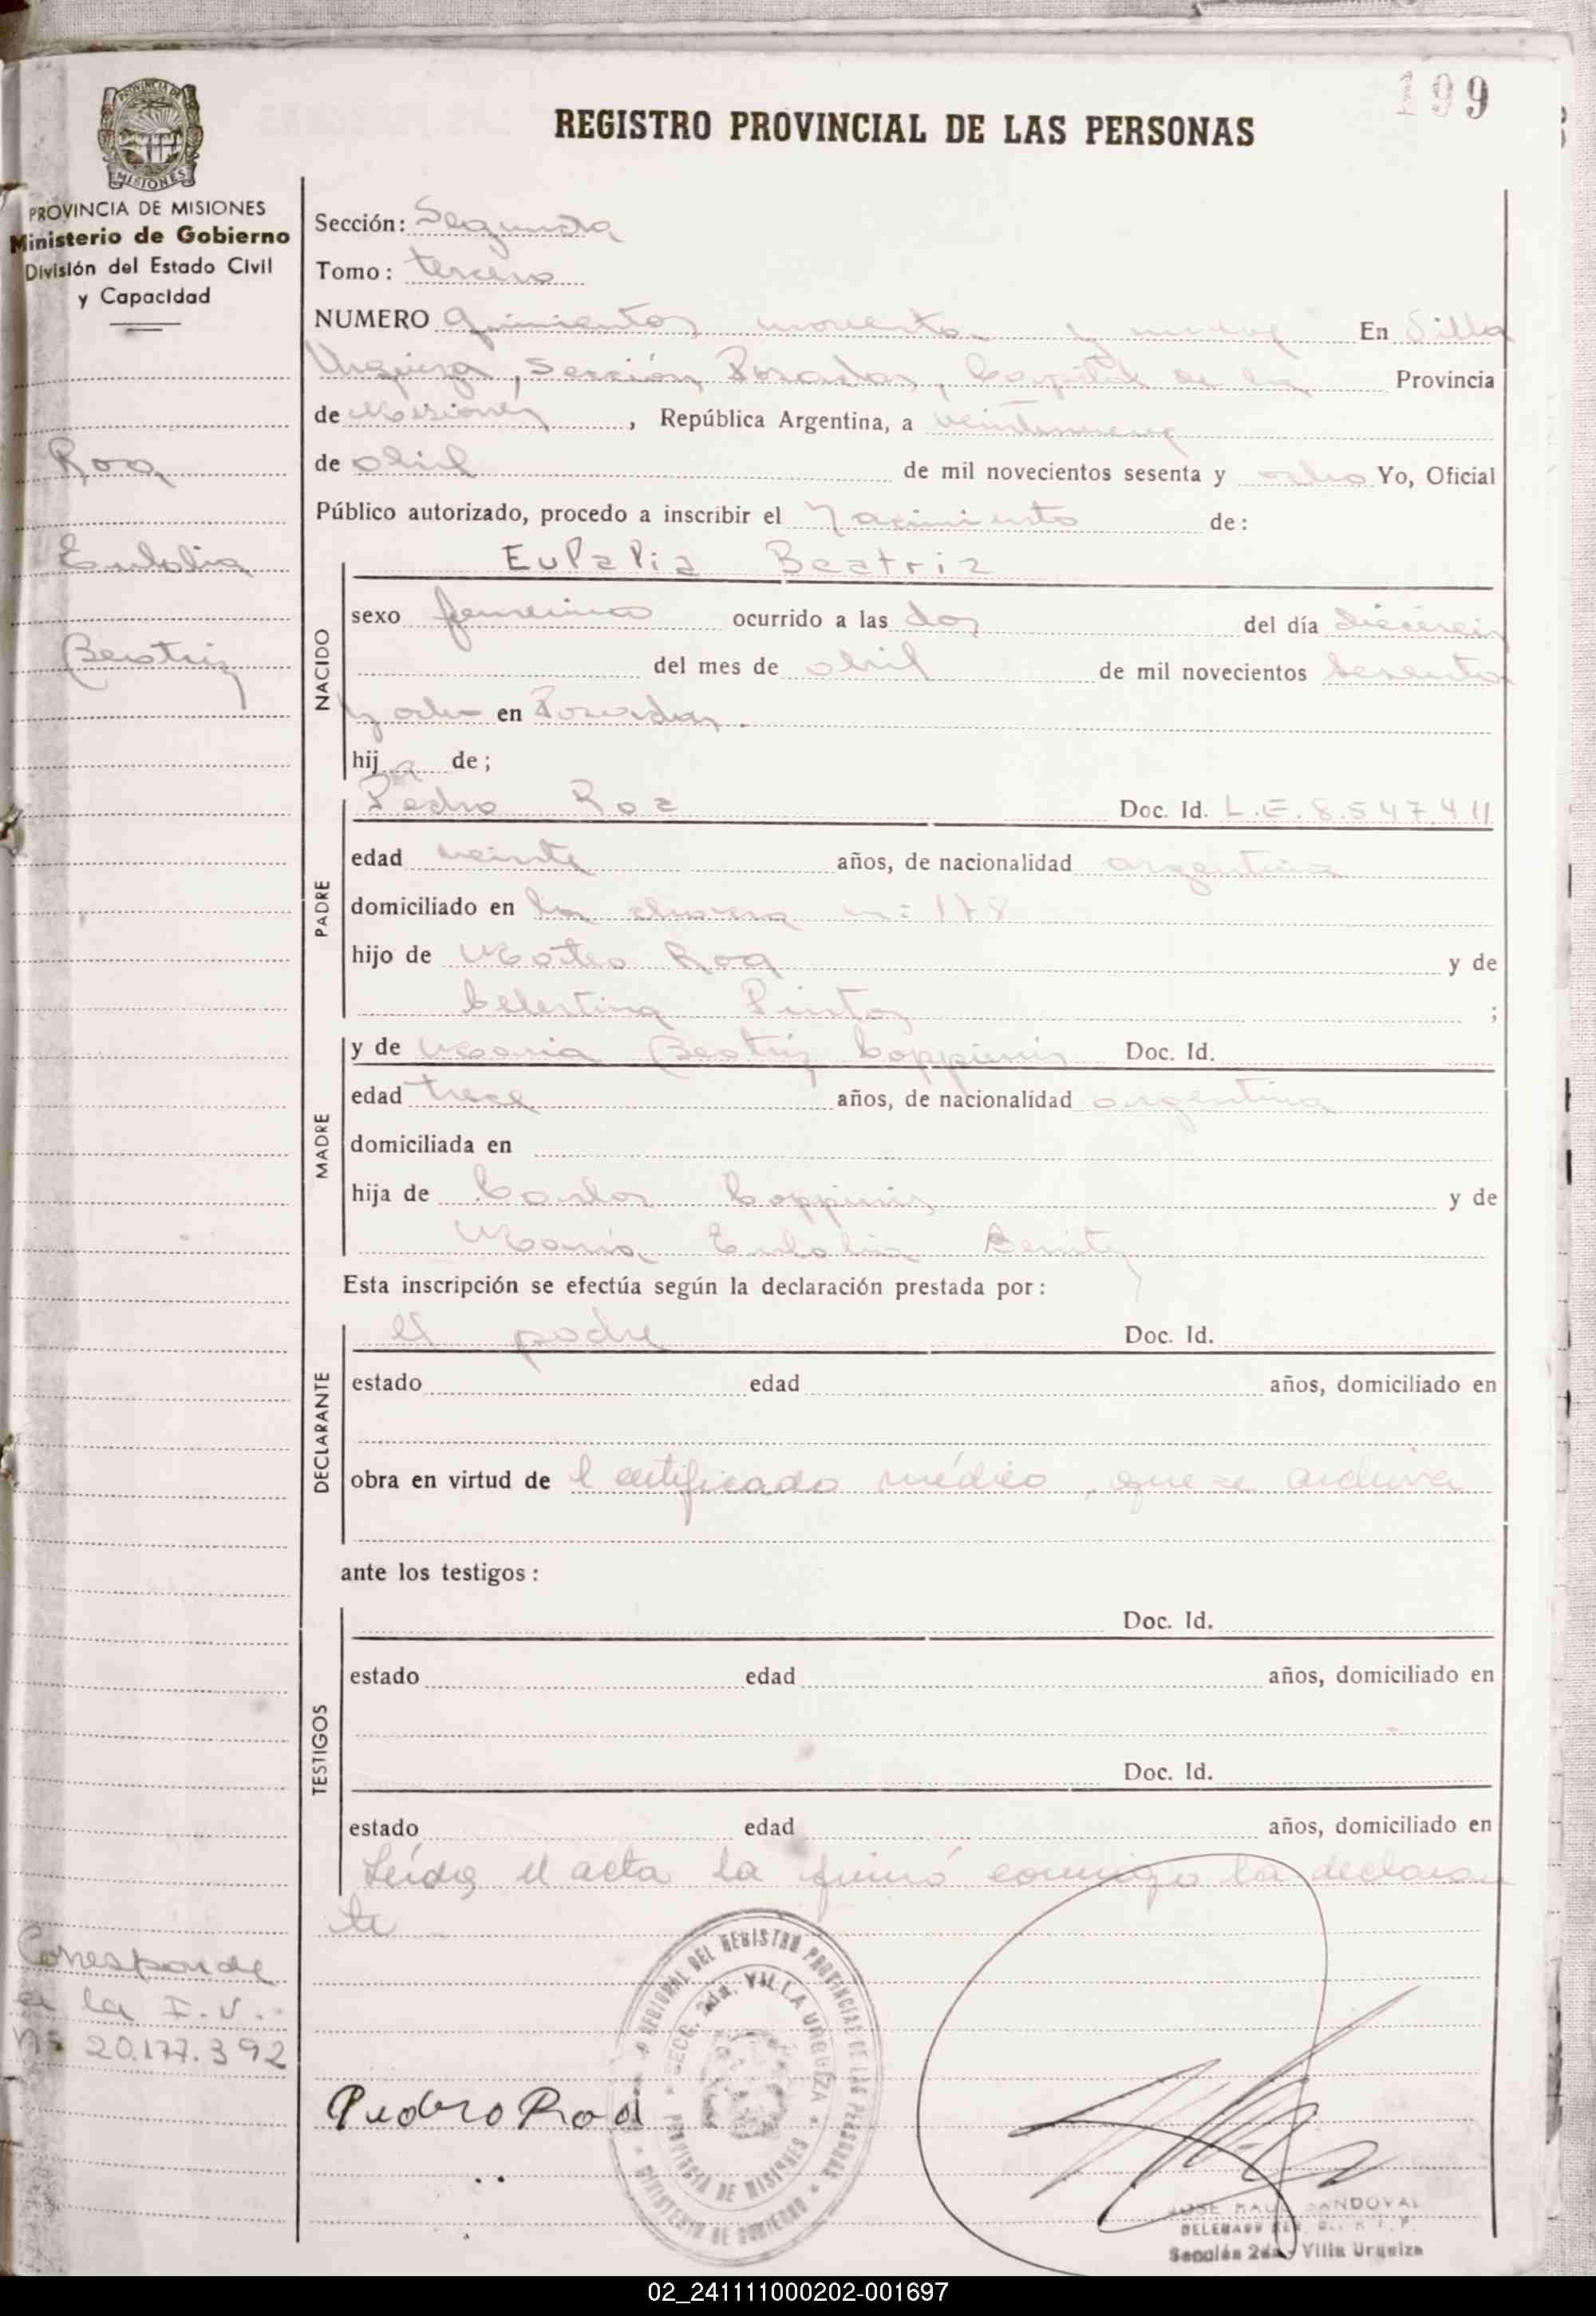 199
PROVINCIA DE
MISIONES
REGISTRO PROVINCIAL DE LAS PERSONAS
PROVINCIA DE MISIONES
Ministerio de Gobierno
División del Estado Civil
y Capacidad
Roa
Eulalia
Beatriz
Sección: Segunda
Tomo: tercero
NUMERO Quinientos noventa y nueve En Villa
Urquiza, Sección Posadas, Capital de la Provincia
de Misiones, República Argentina, a veintinueve
de abril de mil novecientos sesenta y ocho Yo, Oficial
Público autorizado, procedo a inscribir el Nacimiento de:
NACIDO
Eulalia Beatriz
sexo femenino ocurrido a las dos del día dieciseis
del mes de abril de mil novecientos sesenta
y ocho en Posadas.
hija de;
PADRE
Pedro Roa Doc. Id. L.E. 8.547.411
edad veinte años, de nacionalidad argentina
domiciliado en la chacra n= 178
hijo de Mateo Roa y de
Celestina Pinto ;
MADRE
y de Maria Beatriz Doc. Id.
edad trece años, de nacionalidad argentina
domiciliada en
hija de Carlos y de
María Eulalia Benitez
Esta inscripción se efectúa según la declaración prestada por:
DECLARANTE
el padre Doc. Id.
estado edad años, domiciliado en
obra en virtud de l certificado médico, que se archiva
ante los testigos:
TESTIGOS
Doc. Id.
estado edad años, domiciliado en
Doc. Id.
estado edad años, domiciliado en
Leída el acta la firmó conmigo la declaran
te
Corresponde
a la I.V.
Nº 20.177.392
REGIONAL DEL REGISTRO PROVINCIAL DE LAS PERSONAS
SECC. 2da. VILLA URQUIZA
PROVINCIA DE MISIONES
MINISTERIO DE GOBIERNO
Pedro Roa
JOSE RAUL SANDOVAL
DELEGADO
Sección 2da. - Villa Urquiza
02_241111000202-001697